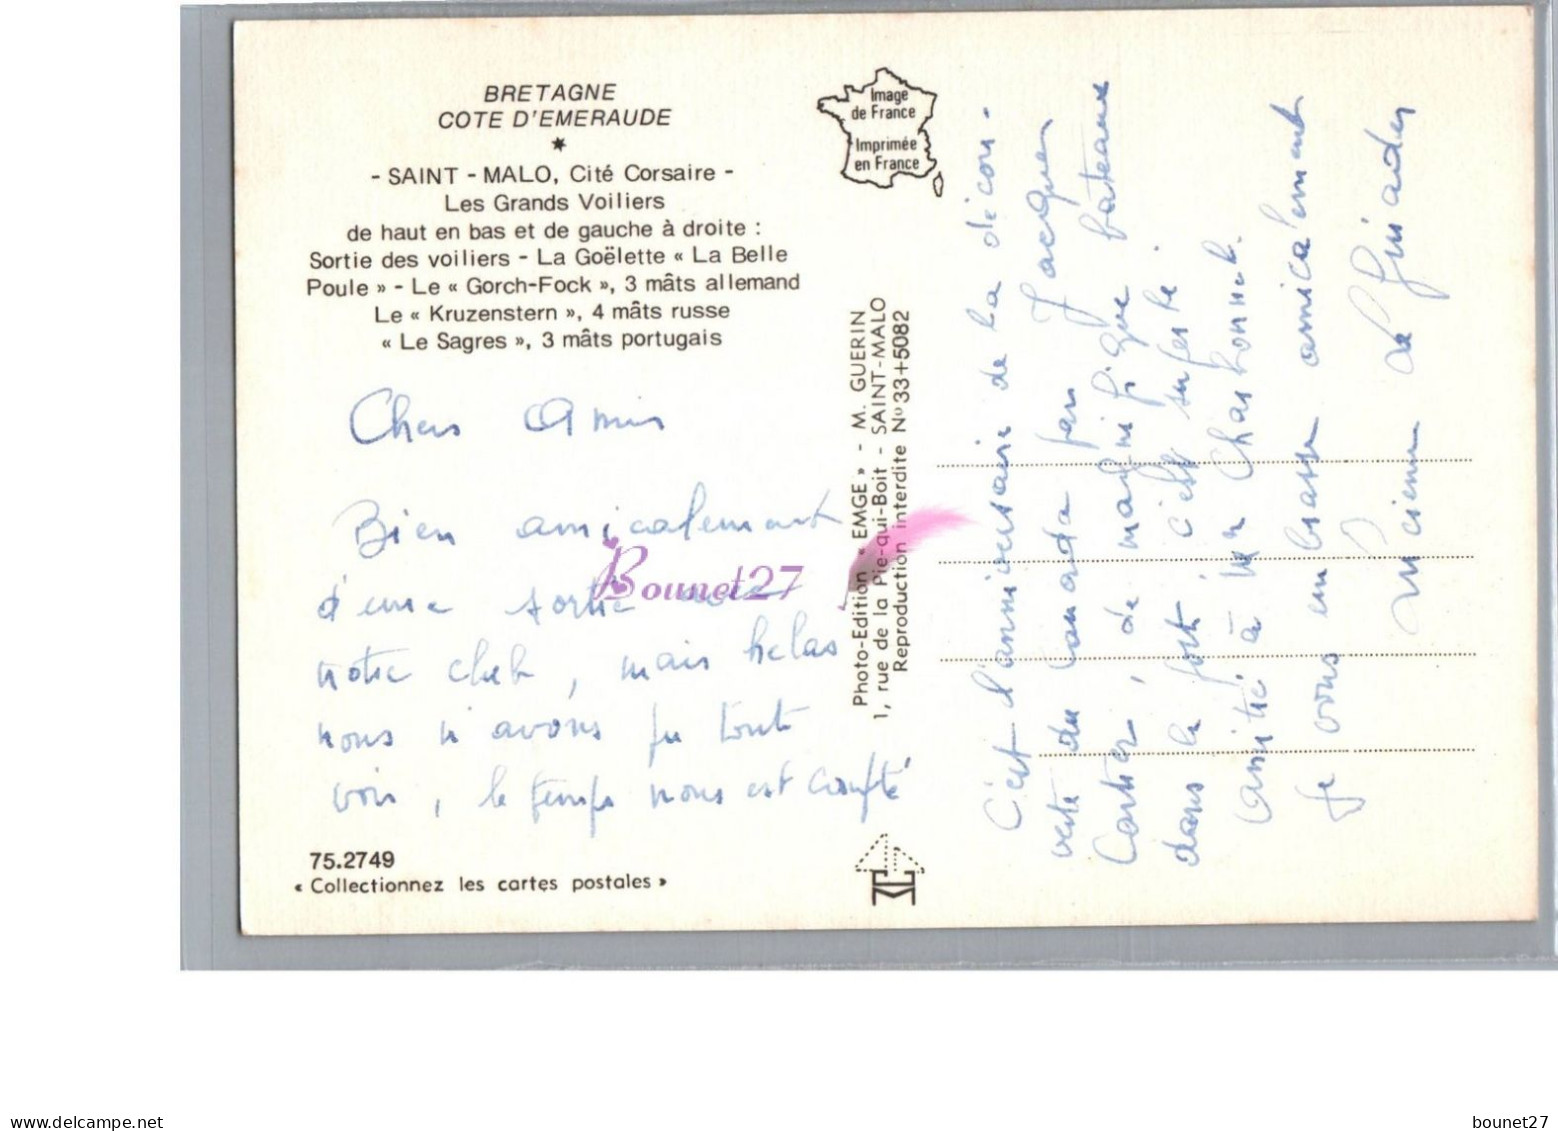 BRETAGNE
COTE D'EMERAUDE
- SAINT - MALO, Cité Corsaire -
Les Grands Voiliers
de haut en bas et de gauche à droite :
Sortie des voiliers - La Goëlette « La Belle
Poule » - Le « Gorch-Fock », 3 mâts allemand
Le « Kruzenstern », 4 mâts russe
« Le Sagres », 3 mâts portugais
Image
de France
Imprimée
en France
Chers Amis
Bien amicalement
d'une sortie avec
notre club, mais helas
nous n'avons pu tout
voir, le temps nous est compté
75.2749
« Collectionnez les cartes postales »
Photo-Edition « EMGE » - M. GUERIN
1, rue de la Pie-qui-Boit - SAINT-MALO
Reproduction interdite N° 33+5082
C'est l'anniversaire de la décou-
verte du Canada par Jacques
Cartier, de magnifique bateaux
dans le port c'est superbe
amitié à Mr Charbonnel.
je vous embrasse amicalement
Lucienne
Bounet27
delcampe.net
bounet27